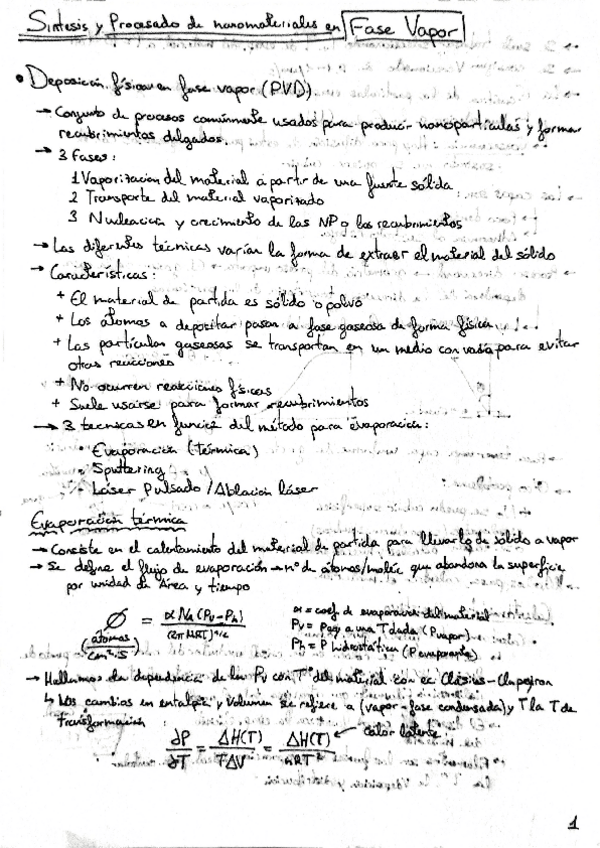 Síntesis y Procesado de nanomateriales en Fase Vapor
• Deposición física en fase vapor (PVD)
→ Conjunto de procesos comúnmente usados para producir nanopartículas y formar
recubrimientos delgados.
→ 3 Fases:
1 Vaporización del material a partir de una fuente sólida
2 Transporte del material vaporizado
3 Nucleación y crecimiento de las NP o los recubrimientos
→ Las diferentes técnicas varían la forma de extraer el material del sólido
→ Características:
+ El material de partida es sólido o polvo
+ Los átomos a depositar pasan a fase gaseosa de forma física
+ Las partículas gaseosas se transportan en un medio con vacío para evitar
otras reacciones
+ No ocurren reacciones físicas
+ Suele usarse para formar recubrimientos
→ 3 técnicas en función del método para evaporación:
• Evaporación (térmica)
• Sputtering
• Láser Pulsado / Ablación láser
Evaporación térmica
→ Consiste en el calentamiento del material de partida para llevarlo de sólido a vapor
→ Se define el flujo de evaporación → nº de átomos/moléc que abandona la superficie
por unidad de Área y tiempo
Ø = α NA (Pv - Ph) / (2π MRT)^1/2
(átomos / cm² · s)
α = coef de evaporación del material
Pv = P a una T dada (P vapor)
Ph = P hidrostática (P evaporante)
→ Hallamos la dependencia de la Pv con Tª del material con ec Clasius-Clapeyron
↳ Los cambios en entalpía y volumen se refiere a (vapor - fase condensada) y T la T de
transformación:
∂P/∂T = ΔH(T)/TΔV = ΔH(T)/nRT² ← calor latente
1